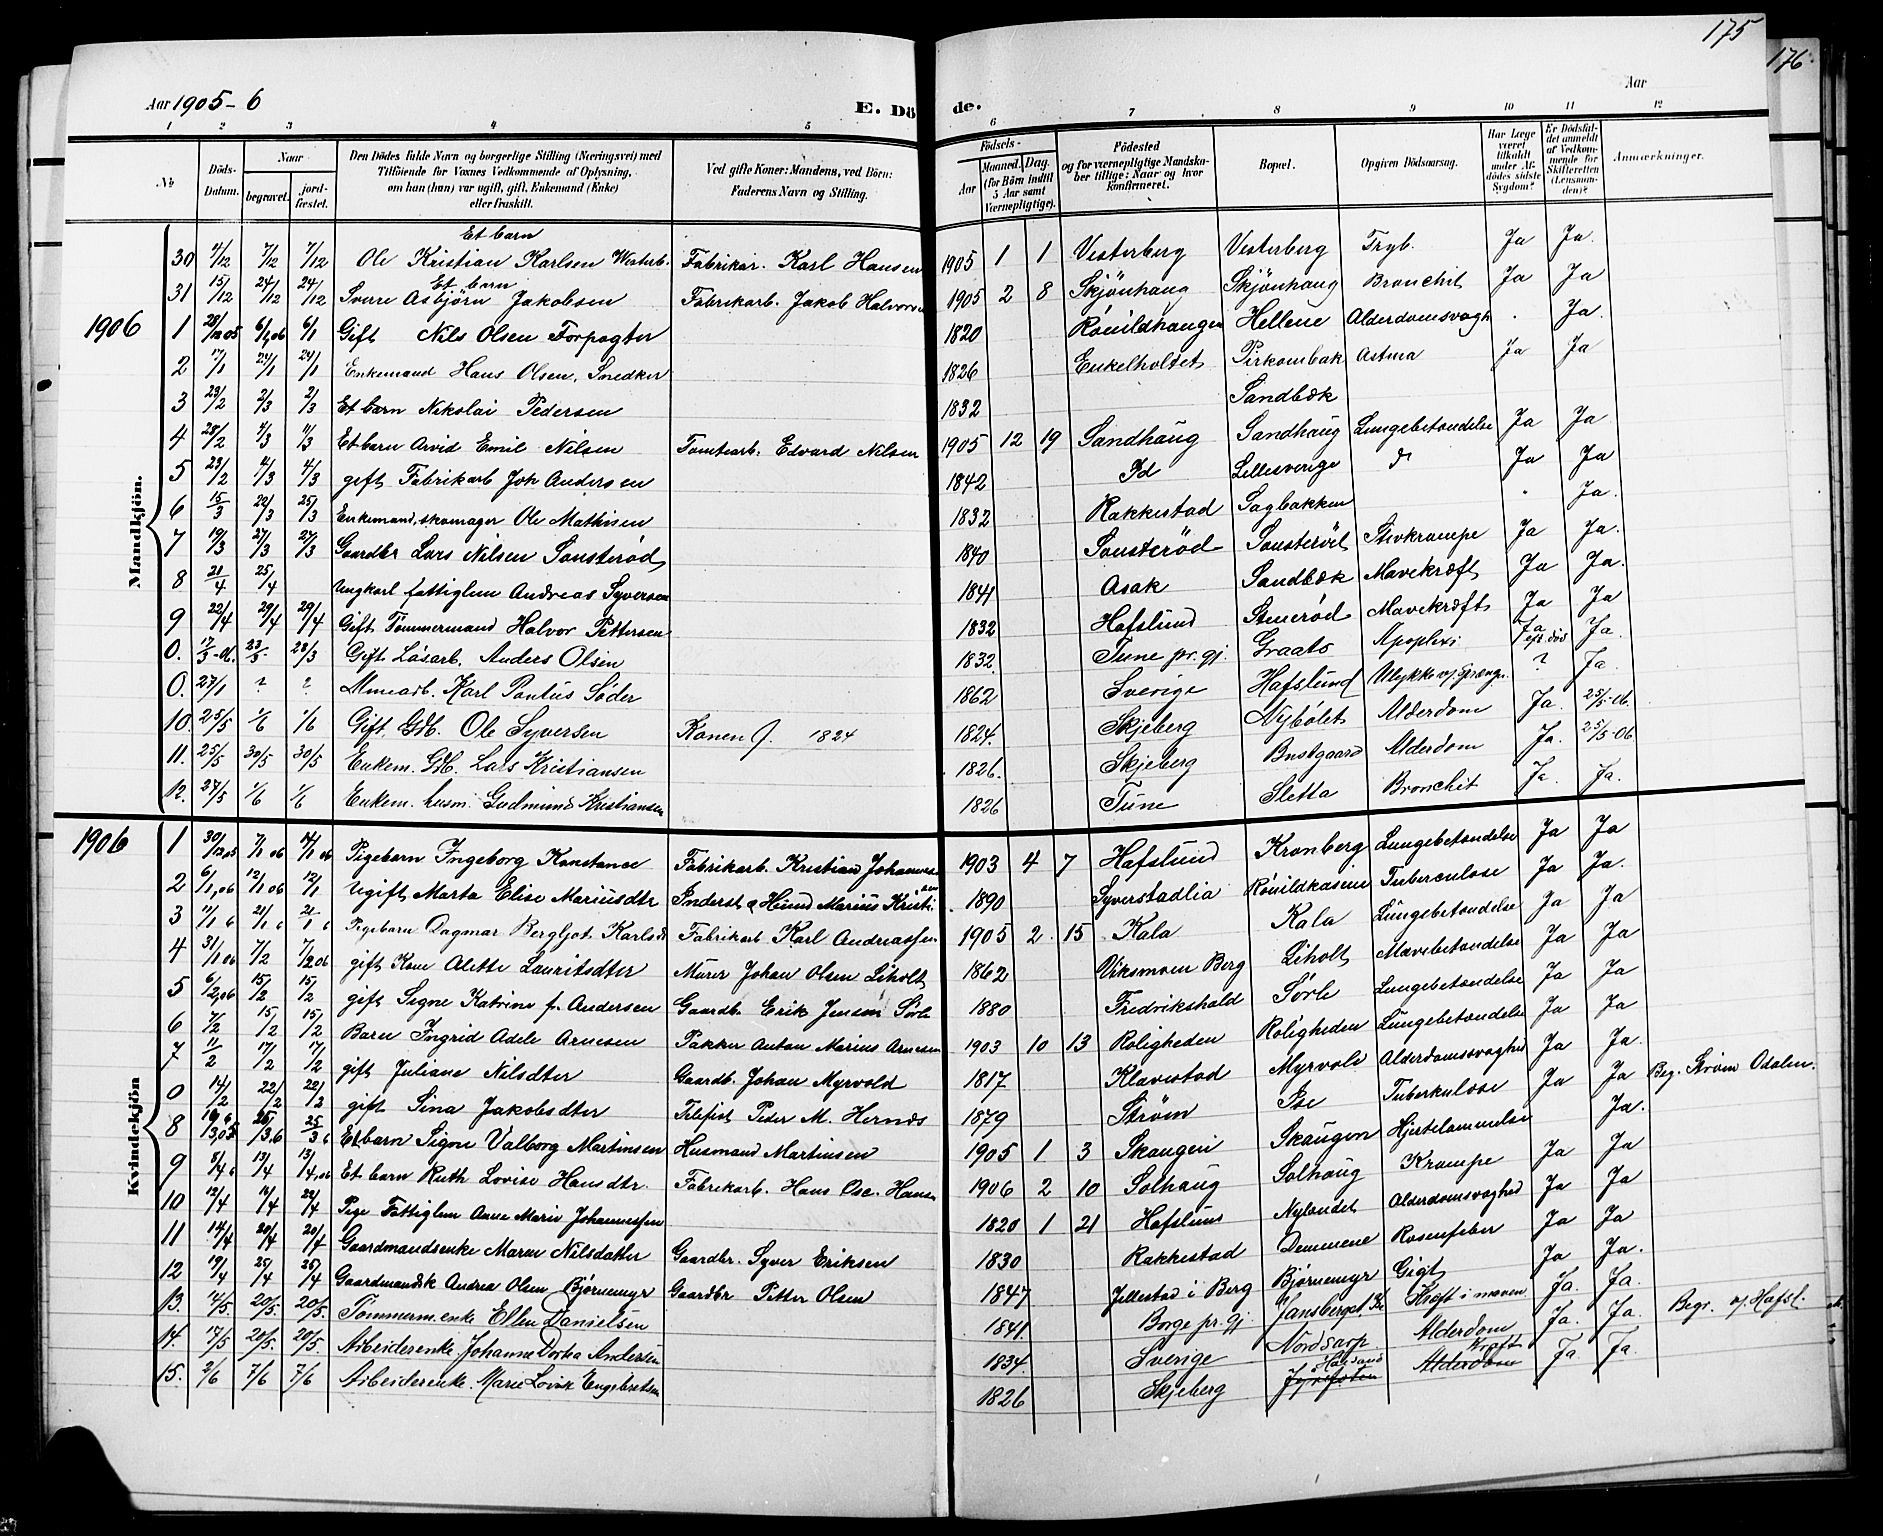 175
176
Aar 1905-6
E. Dö
de.
Aar
1 2 3 4 5 6 7 8 9 10 11 12
No
Döds-Datum.
Naar
begravet.
jord-fæstet.
Den Dödes fulde Navn og borgerlige Stilling (Næringsvei) med Tilföiende for Voxnes Vedkommende af Oplysning, om han (hun) var ugift, gift, Enkemand (Enke) eller fraskilt.
Ved gifte Koner: Mandens, ved Börn: Faderens Navn og Stilling.
Födsels-
Aar
Maaned. Dag.
(for Börn indtil 5 Aar samt Værnepligtige).
Födested og for værnepligtige Mandskaber tillige: Naar og hvor Konfirmeret.
Bopæl.
Opgiven Dödsaarsag.
Har Læge været tilkaldt under Afdödes sidste Sygdom?
Er Dödsfaldet anmeldt af Vedkommende for Skifteretten (Lensmanden)?
Anmærkninger.
Mandkjön.
30 4/12 7/12 7/12 Et barn Ole Kristian Karlsen Westerb. Fabrikar. Karl Hansen 1905 1 1 Vesterberg Vesterberg Tryb. Ja Ja.
31 15/12 24/12 24/12 Et barn Sverre Asbjörn Jakobsen Fabrikarb. Jakob Halvorsen 1905 2 8 Skjönhaug Skjönhaug Bronchit Ja Ja
1906 1 28/12 05 6/1 06 6/1 Gift Nils Olsen Forpagter 1820 Rönildhaugen Hellene Alderdomsvagh . Ja.
2 17/1 24/1 24/1 Enkemand Hans Olsen, Snedker 1826 Enkelholtet Pirkombak Astma Ja Ja
3 23/2 2/3 2/3 Et barn Nikolai Pedersen 1832 Sandbæk
4 28/2 4/3 4/3 Et barn Arvid Emil Nilsen Tomtearb. Edvard Nilsen 1905 12 19 Sandhaug Sandhaug Lungebetændelse Ja Ja
5 23/2 4/3 4/3 gift Fabrikarb Joh Andersen 1842 Id Lellesverige do Ja Ja
6 15/3 22/3 25/3 Enkemand, skomager Ole Mathisen 1832 Rakkestad Sagbakken " Ja.
7 19/3 27/3 27/3 Gaardbr Lars Nilsen Sonsteröd 1840 Sonsteröd Sonsteröd Stivkrampe Ja Ja.
8 21/4 25/4 Ungkarl fattiglem Andreas Syversen 1841 Asak Sandbæk Mavekræft Ja Ja.
9 22/4 29/4 29/4 Gift Tömmermand Halvor Pettersen 1832 Hafslund Stenerød Mavekræft Ja Ja
0. 17/3-06. 23/3- 28/3 Gift Løsarb. Anders Olsen 1832. Tune pr. gj. Graats Apoplexi Ja eft. död Ja.
0. 27/1 ? ? Minearb. Karl Pontus Söder 1862 Sverige Hafslund Ulykke v/ Spræng. ? Ja.
10. 25/5 1/6 1/6 Gift Gdb. Ole Syversen Konen f. 1824 1824. Skjeberg Nybölet Alderdom Ja. 25/5-06.
11. 25/5 30/5 30/5 Enkem. Gdb. Lars Kristiansen 1826. Skjeberg Bustgaard Alderdom Ja. 25/5-06
12. 27/5 1/6 1/6 Enkem. husm. Gudmund Kristiansen 1826 Tune Sletta Bronchit Ja. Ja.
Kvindekjön
1906 1 30/12 05 7/1 06 14/1 06 Pigebarn Ingeborg Konstance Fabrikarb. Kristian Johannessen 1903 4 7 Hafslund Kronberg Lungebetændelse Ja Ja
2 6/1,06 12/1 06 12/1 Ugift Marta Elise Mariusdtr Inderst & Hund Marius Kristi. 1890 Syverstadlia Rönildkasene Tuberculose Ja Ja.
3 11/1 6 21/1 6 21/1 6 Pigebarn Dagmar Bergljot Karlsd Fabrikarb Karl Andreassen 1905 2 15 Kala Kala Lungebetændelse Ja Ja
4 31/1 06 7/2 7/2 06 gift Kone Alette Lauritsdtter Murer Johan Olsen Liholt 1862 Viksmoen Berg Liholt Mavebetændelse Ja Ja
5 6/2,06 15/2 15/2 gift Signe Katrine f. Andersen Gaardb. Erik Jenson Sörli 1880 Fredrikshald Sörli Lungebetændelse Ja Ja
6 7/2 15/2 15/2 Barn Ingrid Adele Arnesen Pakker Anton Marius Arnesen 1903 10 13 Roligheden Roligheden Lungebetændelse Ja Ja
7 11/2 17/2 17/2 gift Juliane Nilsdter Gaardb. Johan Myrvold 1817 Klavestad Myrvold Alderdomssvaghed Ja Ja.
0 14/2 22/2 22/2 gift Sina Jakobsdtter Tilsist Peder M. Hernæs 1879 Ström Ise Tuberkulose Ja Ja Beg. Ström Odalen.
8 25/3 6 25/3 6 Et barn Signe Valborg Martinsen Husmand Martinsen 1905 1 3 Skaugen Skaugen Hjertelammelse Ja.
9 8/4 6 13/4 13/4,06 Et barn Ruth Lovise Hansdtr. Fabrikarb. Hans Osc. Hansen 1906 2 10 Solhaug Solhaug Krampe Ja Ja
10 12/4 17/4 22/4 Pige Fattiglem Anne Marie Johannessen 1820 1 21 Hafslund Nylandet Alderdomssvaghed Ja Ja
11 14/4 20/4 20/4 Gaardmandsenke Maren Nilsdatter Gaardbr. Syver Eriksen 1830 Rakkestad Demmene Rosenfeber Ja Ja
12 19/4 25/4 25/4 Gaardmandsk Andrea Olsen Björnemyr Gaardbr Petter Olsen 1847 Jellestad i Berg Björnemyr Gigt Ja Ja.
13. 14/5 20/5. 20/5. Tömmerm. enke Ellen Danielsen 1841. Borge pr. gj. Kræft i maven Ja. Ja. Begr. v/ Hafsl.
14. 17/5 20/5. 20/5. Arbeiderenke. Johanne Dortea Andersen 1834. Sverige Nordsarp Alderdom Ja. Ja.
15. 2/6 7/6 7/6 Arbeiderenke. Marie Lovise Engebretsen 1826 Skjeberg Kræft Alderdom Ja Ja.